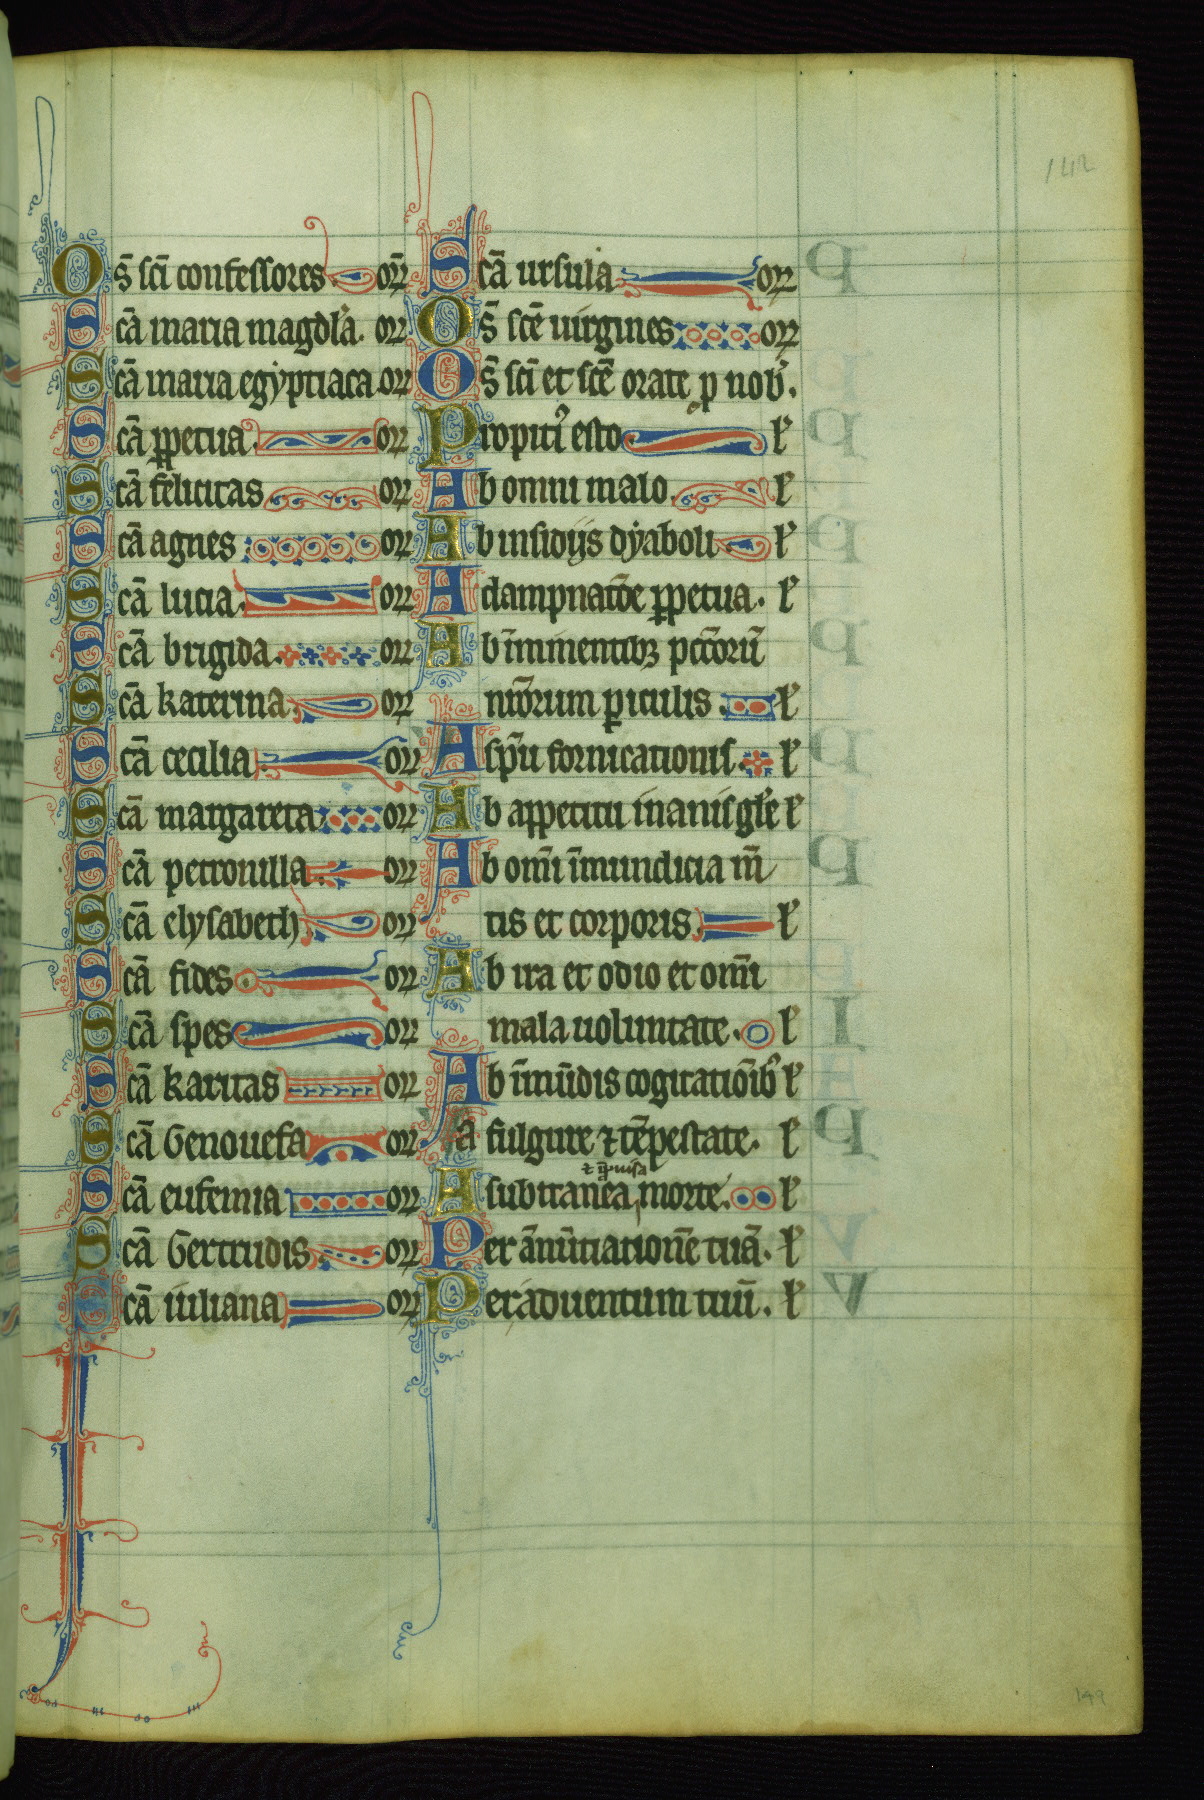 Os̄ sc̄i confessores. or̄
Scā maria magdl'a. or̄
Scā maria egyptiaca. or̄
Scā ꝑpetua. or̄
Scā felicitas or̄
Scā agnes or̄
Scā lucia. or̄
Scā brigida. or̄
Scā katerina. or̄
Scā cecilia or̄
Scā margareta. or̄
Scā petronilla. or̄
Scā elysabeth or̄
Scā fides or̄
Scā spes or̄
Scā karitas or̄
Scā Genouefa or̄
Scā eufemia or̄
Scā Gertrudis or̄
Scā iuliana or̄
Scā ursula or̄
Os̄ sc̄e uirgines or̄
Os̄ sc̄i et sc̄e orate p nob'.
Propiti' esto. ł
Ab omni malo. ł
Ab insidijs dyaboli. ł
A dampnatōe ꝑpetua. ł
Ab īminentibꝫ pctōrū
nrōrum ꝑiculis. ł
A spū fornicationis. ł
Ab appetitu inanis gl'e ł
Ab omī īmundicia m̄
tis et corporis. ł
Ab ira et odio et omī
mala uoluntate. ł
Ab īmūdis cogitatiōib' ł
A fulgure ⁊ tēpestate. ł
A subitanea morte. ł
Per ānūtiationē tuā. ł
Per aduentum tuū. ł
142
149